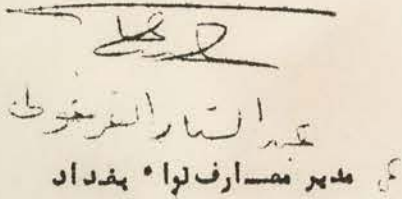 عبد الستار القرغولي
ع مدير معارف لواء بغداد